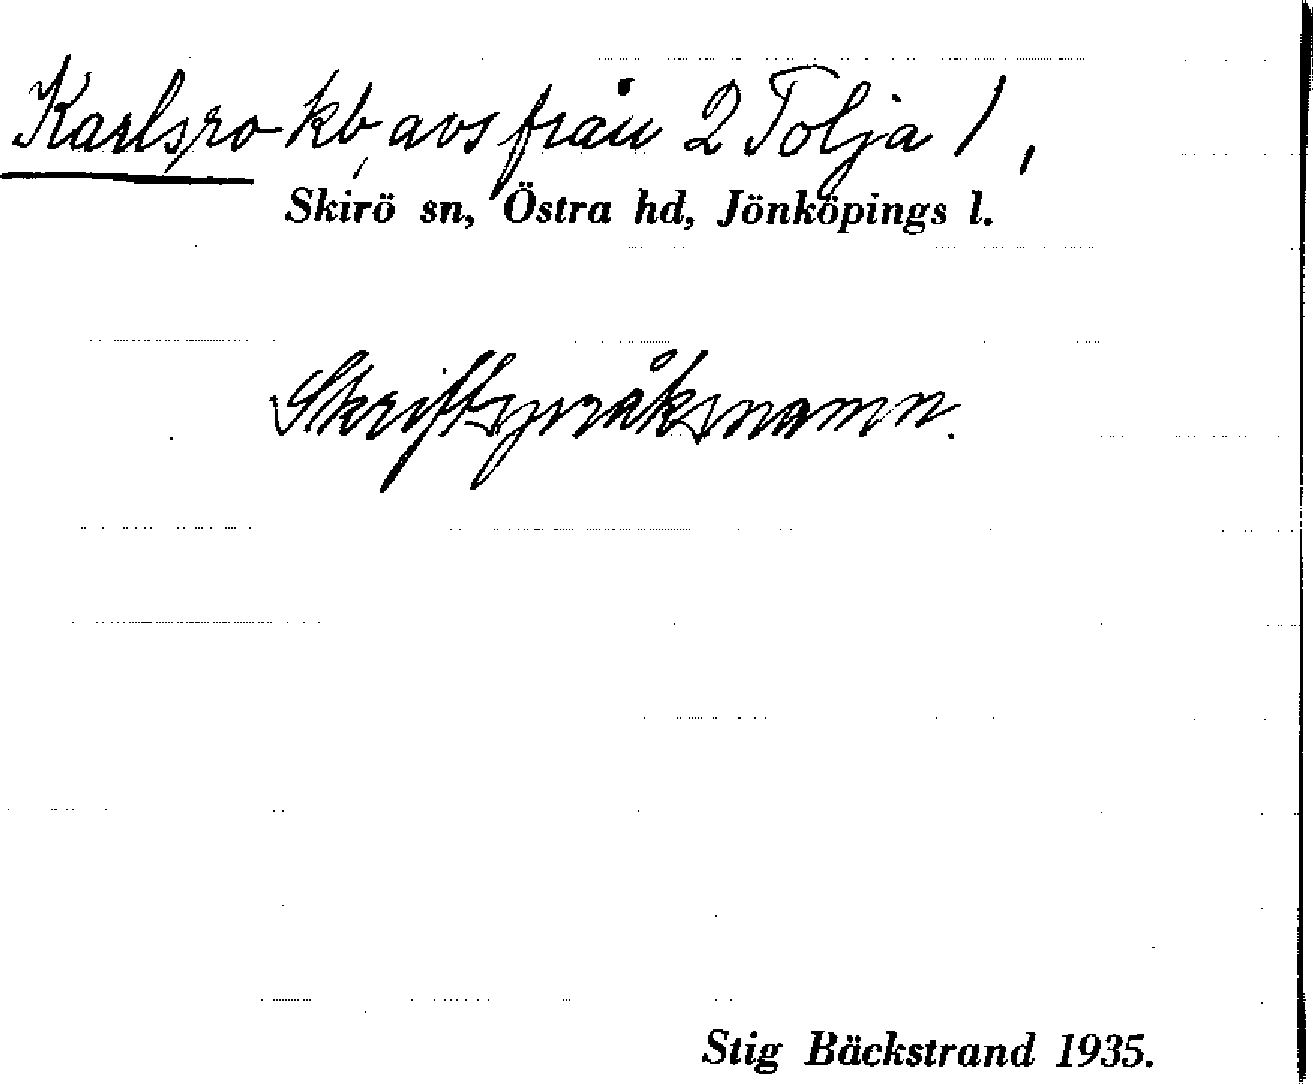 Karlsro kb, avs från 2 Tolja 1,
Skirö sn, Östra hd, Jönköpings l.
Skriftspråksnamn.
Stig Bäckstrand 1935.